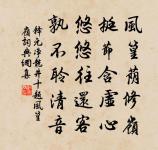 風篁蔭修嶺
挺節含虛心
悠悠往還客
孰不聆清音
釋元淨龍井十題風篁
嶺詞典網集